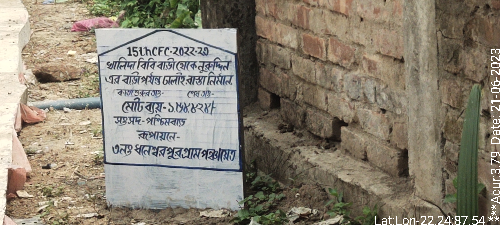 15th CFC-2022-23
খালিদা বিবি বাড়ী থেকে নুরুদ্দিন
এর বাড়ী পর্যন্ত ঢালাই রাস্তা নির্মান
কাজ শুরুর তাং- শেষ তাং-
মোট ব্যয়-
সংসদ- পশ্চিমবাড়
রূপায়নে-
৩নং ধনেশ্বরপুর গ্রাম পঞ্চায়েত
Lat:Lon- 22.24:87.54
***Acur:3.79 Date: 21-06-2023